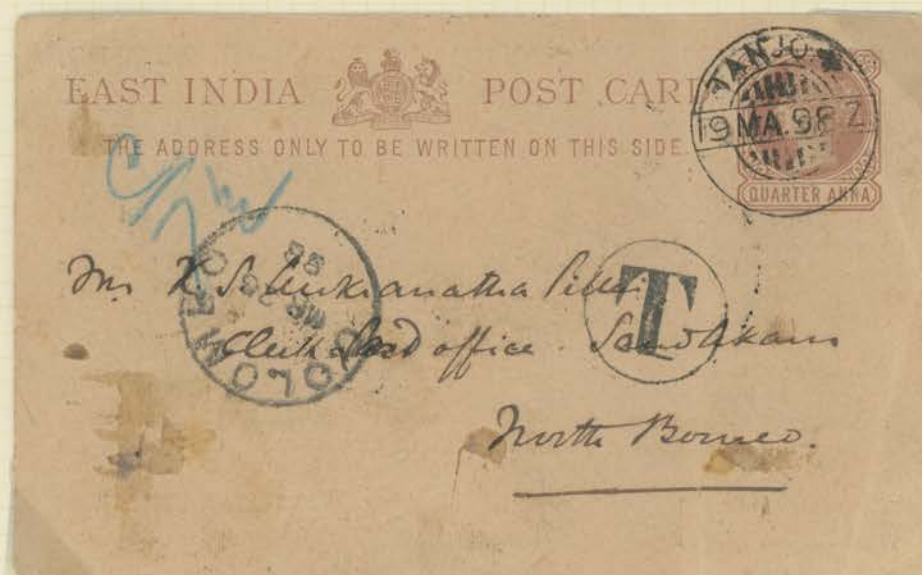 EAST INDIA POST CARD
THE ADDRESS ONLY TO BE WRITTEN ON THIS SIDE.
TANJO
19 MA. 98 Z
QUARTER ANNA
COLOMBO
98
T
Mr K. S.
Clerk Land office. Sandakan
North Borneo.